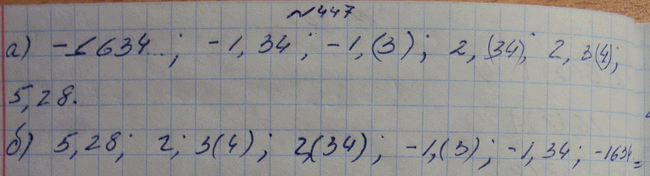 №447
а) -1634...; -1,34; -1,(3); 2,(34); 2,3(4);
5,28.
б) 5,28; 2; 3(4); 2,(34); -1,(3); -1,34; -1634=